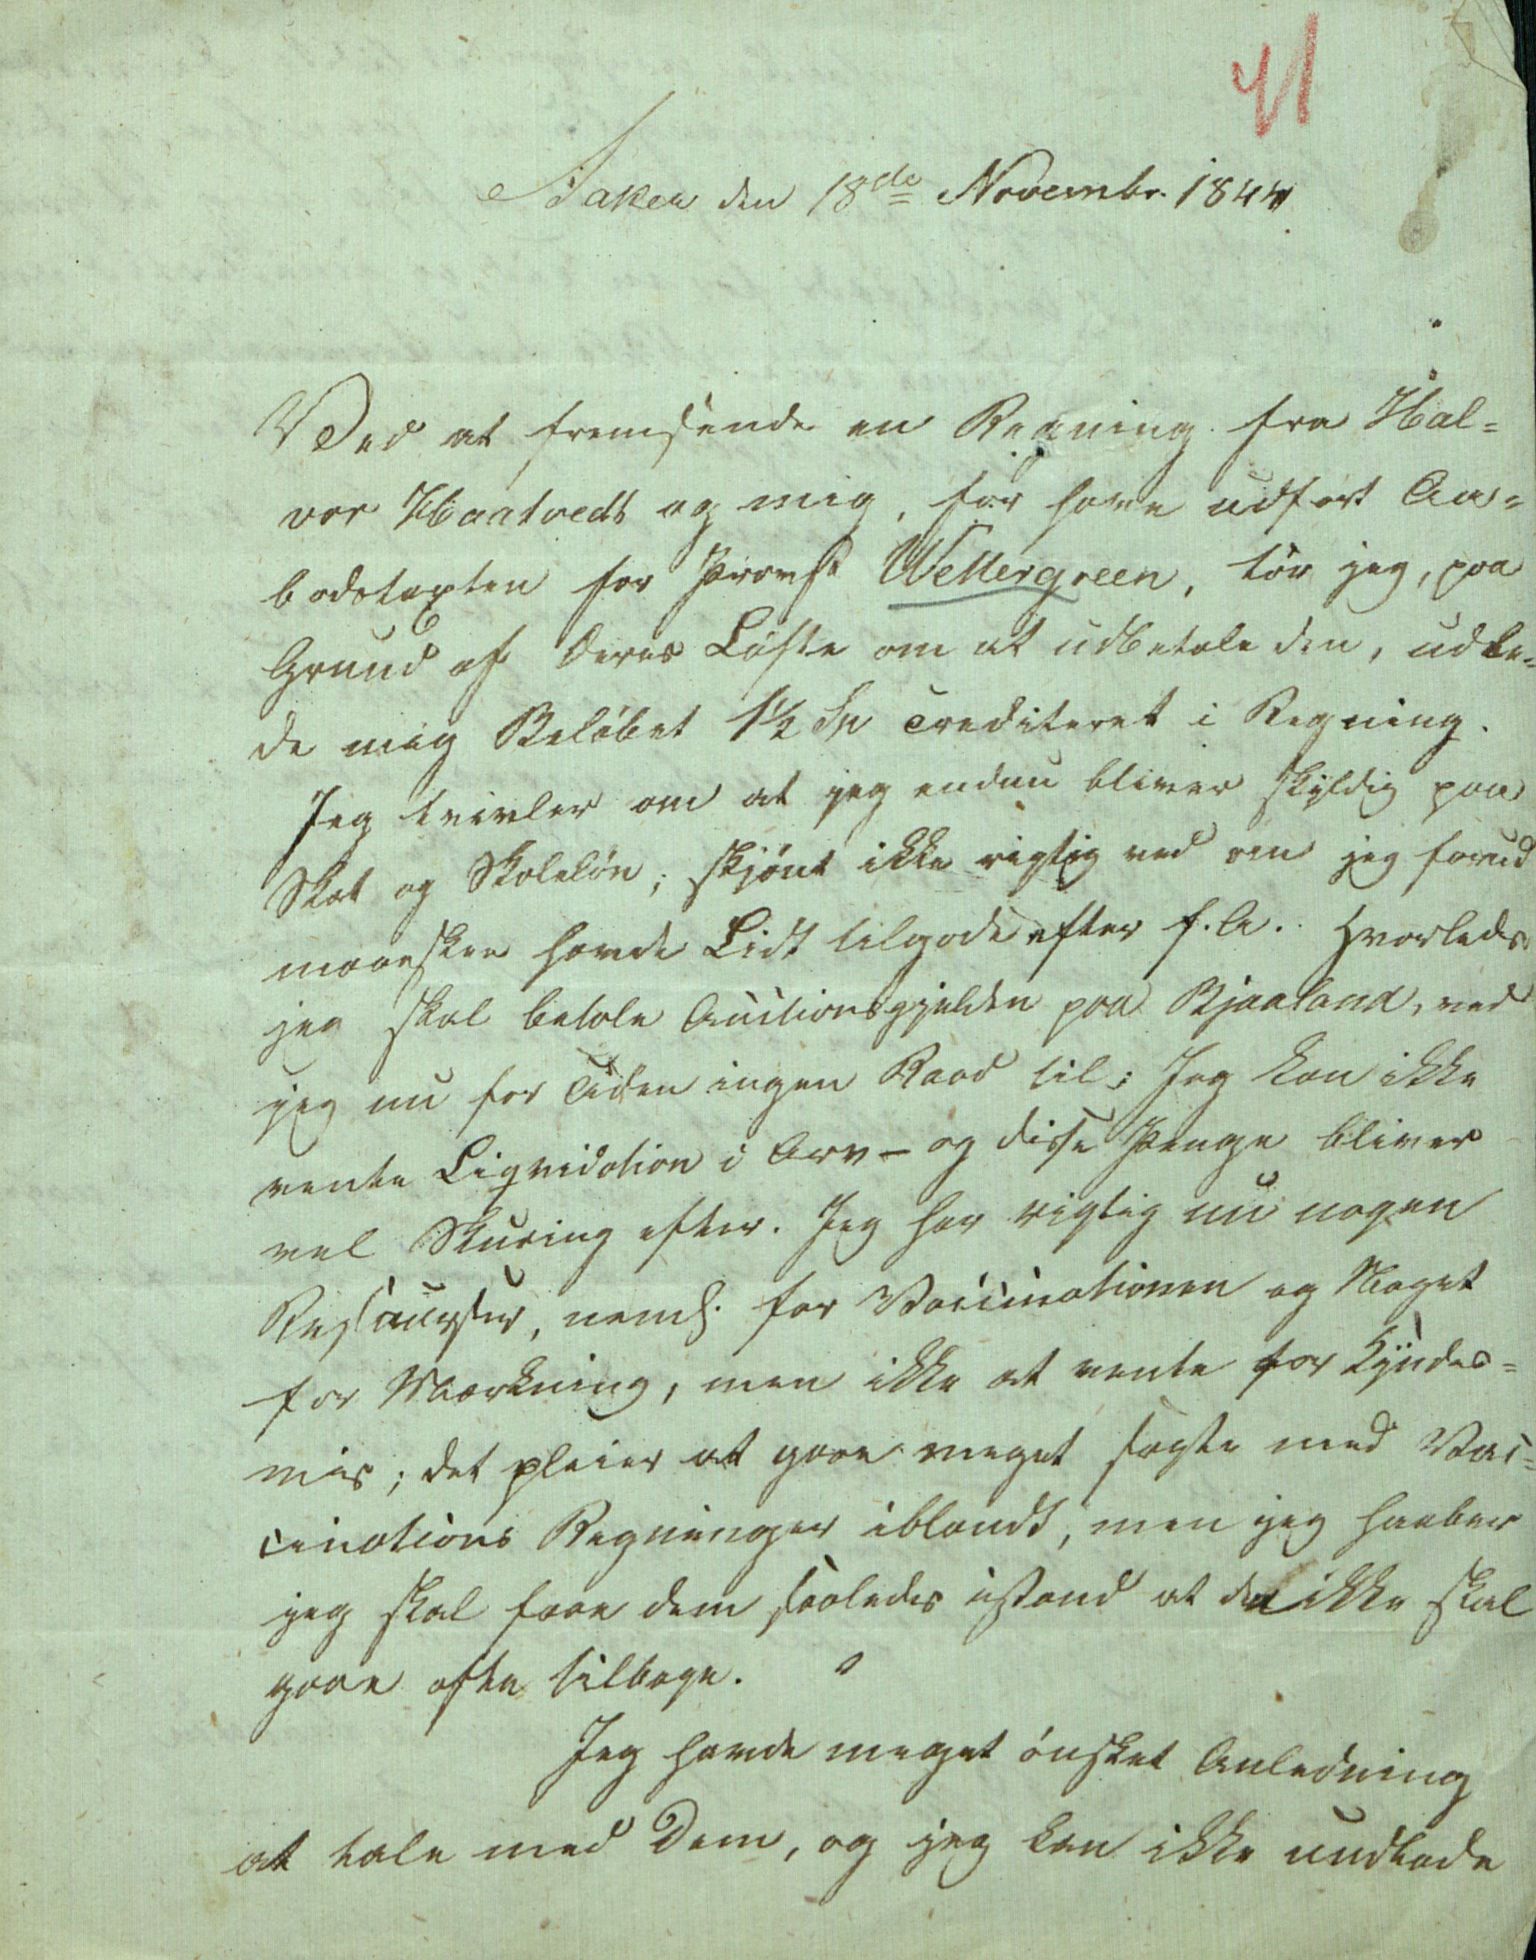 41
Aaker den 18de Novembr. 1844
Ved at fremsende en Regning fra Hal-
vor Haatvedt og mig, for have udført Aa-
bodstaxten for Provst Wettergreen, tör jeg, paa
Grund af Deres Löfte om at udbetale den, udbe-
de mig Belöbet 1½ Sp crediteret i Regning.
Jeg tvivler om at jeg endnu bliver skyldig paa
Skat og Skolelön; skjönt ikke rigtig ved om jeg forud
maaskee havde Lidt tilgode efter f. A. Hvorledes
jeg skal betale Auctionsgjelden paa Bjaaland, ved
jeg nu for Tiden ingen Raad til; Jeg kan ikke
vente Liqvidation i Arv- og disse Penge bliver
vel Skuring efter. Jeg har rigtig nu nogen
Ressourser, neml. for Vaccinationen og Noget
for Mærkning, men ikke at vente for Kyndel-
mis; det pleier at gaae meget sagte med Vac-
cinations Regninger iblandt, men jeg haaber
jeg skal faae dem saaledes istand at de ikke skal
gaae ofte tilbage.
Jeg havde meget önsket Anledning
at tale med Dem, og jeg kan ikke undlade